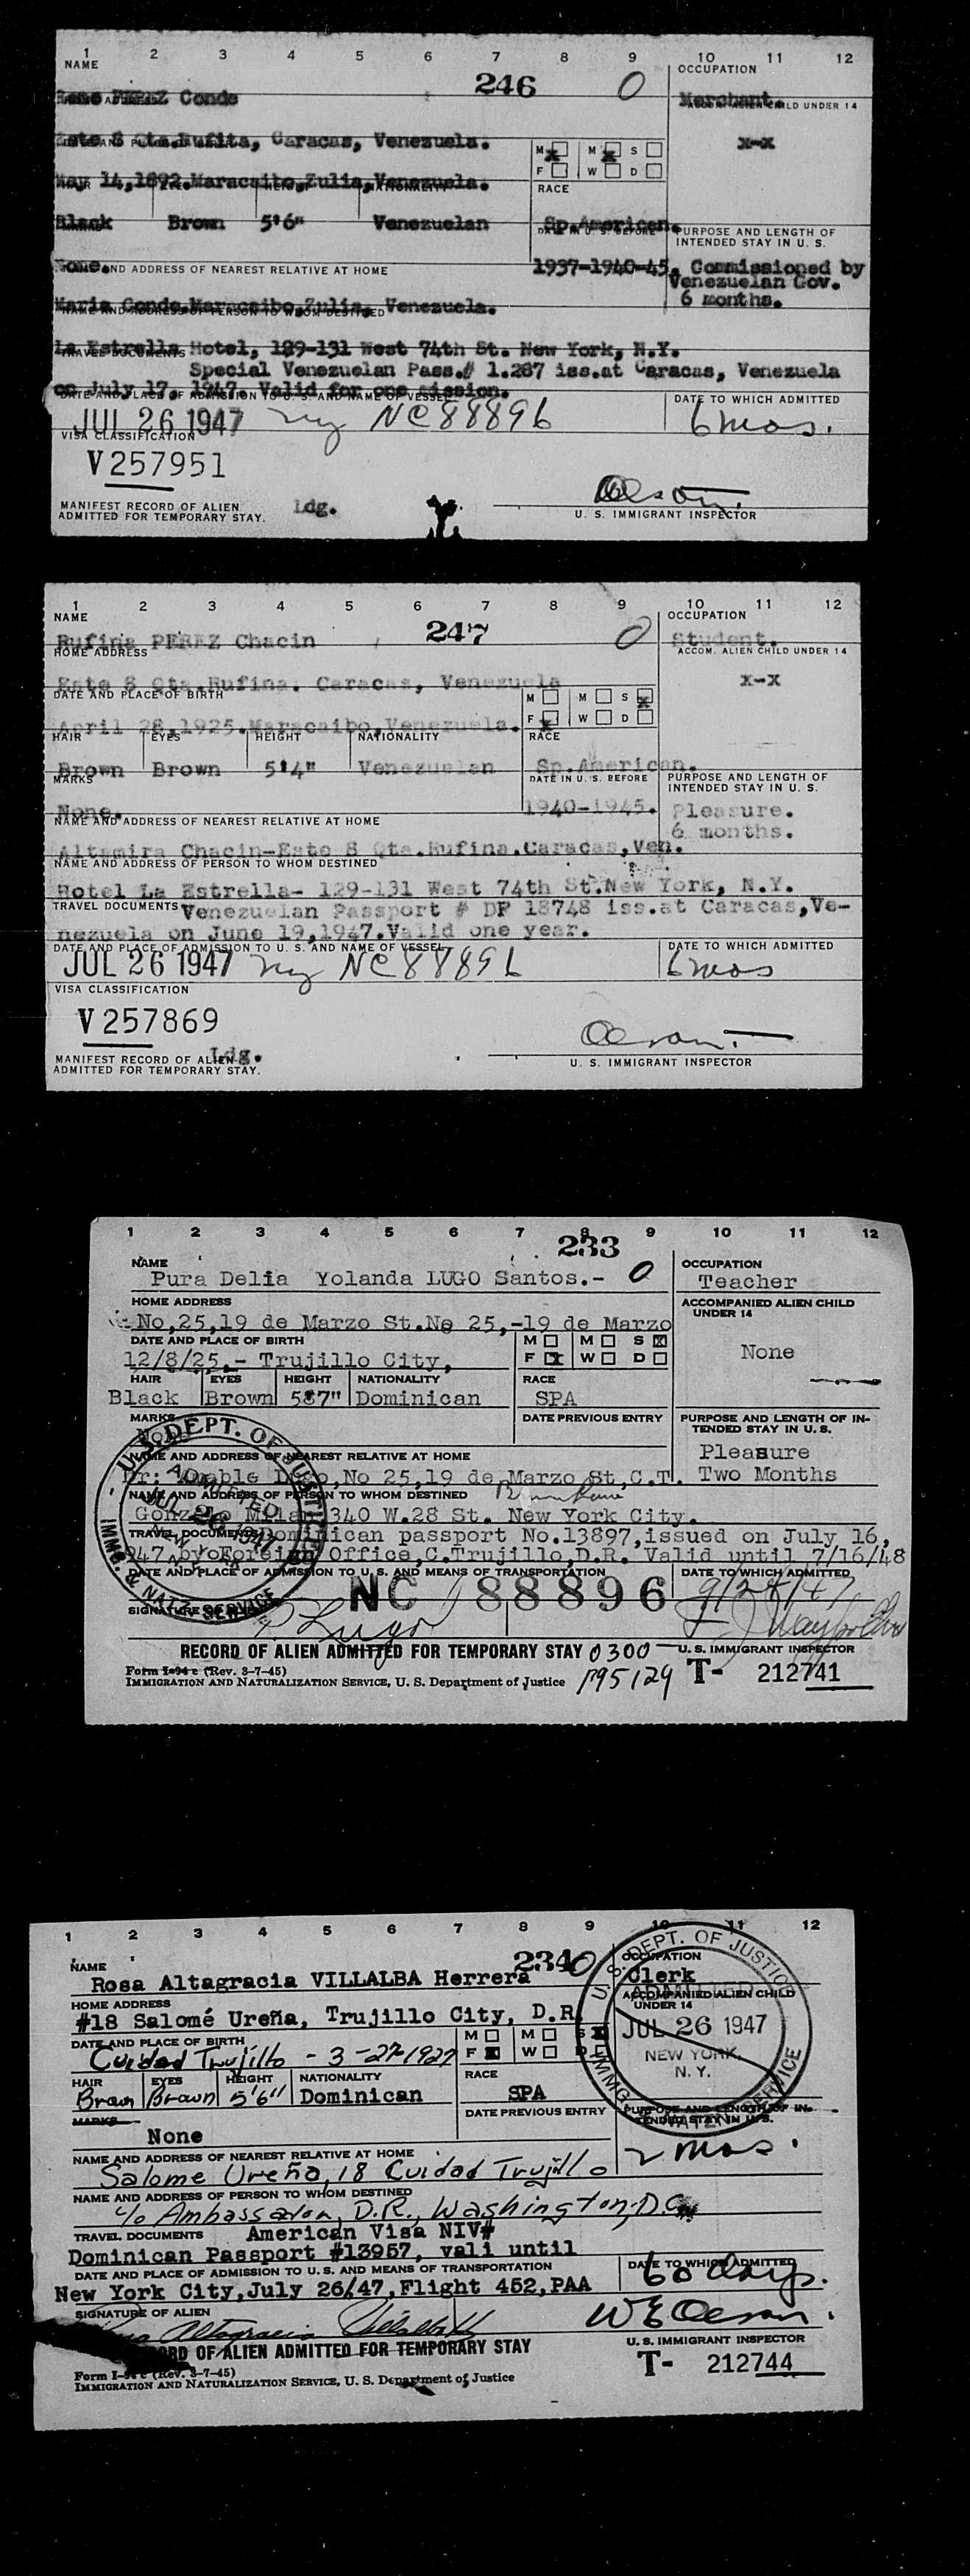 1 2 3 4 5 6 7 8 9 10 11 12
NAME 246 0 OCCUPATION
PEREZ Conde Merchant.
CHILD UNDER 14
Este 8 Qta.Rufita, Caracas, Venezuela. X-X
M M S
F W D
May 14,1892.Maracaibo,Zulia,Venezuela.
RACE
Black Brown 5'6" Venezuelan Sp.American.
DATE IN U. S. BEFORE PURPOSE AND LENGTH OF
INTENDED STAY IN U. S.
None. AND ADDRESS OF NEAREST RELATIVE AT HOME 1937-1940-45. Commissioned by
Venezuelan Gov.
6 months.
Maria Conde.Maracaibo,Zulia, Venezuela.
NAME AND ADDRESS OF PERSON TO WHOM DESTINED
La Estrella Hotel, 129-131 West 74th St. New York, N.Y.
TRAVEL DOCUMENTS
Special Venezuelan Pass.# 1.287 iss.at Caracas, Venezuela
on July 17, 1947. Valid for one mission.
DATE AND PLACE OF ADMISSION TO U. S. AND NAME OF VESSEL DATE TO WHICH ADMITTED
JUL 26 1947 ny NC 88896 6 mos.
VISA CLASSIFICATION
V 257951
MANIFEST RECORD OF ALIEN
ADMITTED FOR TEMPORARY STAY. Ldg.
U. S. IMMIGRANT INSPECTOR
1 2 3 4 5 6 7 8 9 10 11 12
NAME 247 0 OCCUPATION
Rufina PEREZ Chacin Student.
HOME ADDRESS ACCOM. ALIEN CHILD UNDER 14
Este 8 Qta.Rufina. Caracas, Venezuela X-X
DATE AND PLACE OF BIRTH
M M S
F W D
April 28,1925.Maracaibo,Venezuela.
HAIR EYES HEIGHT NATIONALITY RACE
Brown Brown 5'4" Venezuelan Sp.American.
MARKS DATE IN U. S. BEFORE PURPOSE AND LENGTH OF
INTENDED STAY IN U. S.
None. 1940-1945. Pleasure.
NAME AND ADDRESS OF NEAREST RELATIVE AT HOME 6 months.
Altamira Chacin-Este 8 Qta.Rufina.Caracas,Ven.
NAME AND ADDRESS OF PERSON TO WHOM DESTINED
Hotel La Estrella- 129-131 West 74th St.New York, N.Y.
TRAVEL DOCUMENTS Venezuelan Passport # DP 18748 iss.at Caracas,Ve-
nezuela on June 19,1947.Valid one year.
DATE AND PLACE OF ADMISSION TO U. S. AND NAME OF VESSEL DATE TO WHICH ADMITTED
JUL 26 1947 ny NC 88896 6 mos
VISA CLASSIFICATION
V 257869
MANIFEST RECORD OF ALIEN Ldg.
ADMITTED FOR TEMPORARY STAY.
U. S. IMMIGRANT INSPECTOR
1 2 3 4 5 6 7 8 9 10 11 12
233
NAME OCCUPATION
Pura Delia Yolanda LUGO Santos.- 0 Teacher
HOME ADDRESS ACCOMPANIED ALIEN CHILD
UNDER 14
No,25,19 de Marzo St.No 25,-19 de Marzo
DATE AND PLACE OF BIRTH M M S None
F W D
12/8/25.- Trujillo City,
HAIR EYES HEIGHT NATIONALITY RACE
Black Brown 5'7" Dominican SPA
MARKS DATE PREVIOUS ENTRY PURPOSE AND LENGTH OF IN-
TENDED STAY IN U. S.
None Pleasure
NAME AND ADDRESS OF NEAREST RELATIVE AT HOME
Lugo,No 25,19 de Marzo St,C.T. Two Months
NAME AND ADDRESS OF PERSON TO WHOM DESTINED
Gonzalo Milan 340 W.28 St. New York City.
TRAVEL DOCUMENTS Dominican passport No.13897,issued on July 16,
1947 by Foreign Office,C.Trujillo,D.R. Valid until 7/16/48
DATE AND PLACE OF ADMISSION TO U. S. AND MEANS OF TRANSPORTATION DATE TO WHICH ADMITTED
U. S. DEPT. OF JUSTICE
ADMITTED
JUL 26 1947
NEW YORK
N. Y.
IMMG. & NATZ. SERVICE
NC 88896
SIGNATURE OF ALIEN
P Lugo
RECORD OF ALIEN ADMITTED FOR TEMPORARY STAY 0300 U. S. IMMIGRANT INSPECTOR
Form I-94 c (Rev. 3-7-45)
IMMIGRATION AND NATURALIZATION SERVICE, U. S. Department of Justice P95129 T- 212741
1 2 3 4 5 6 7 8 9 10 11 12
234 0
NAME OCCUPATION
Rosa Altagracia VILLALBA Herrera Clerk
HOME ADDRESS ACCOMPANIED ALIEN CHILD
UNDER 14
#18 Salomé Ureña, Trujillo City, D.R.
DATE AND PLACE OF BIRTH M M S
F W D
Cuidad Trujillo - 3-27-1927
U. S. DEPT. OF JUSTICE
ADMITTED
JUL 26 1947
NEW YORK,
N. Y.
IMMG. & NATZ. SERVICE
HAIR EYES HEIGHT NATIONALITY RACE
Brown Brown 5'6" Dominican SPA
MARKS DATE PREVIOUS ENTRY PURPOSE AND LENGTH OF IN-
TENDED STAY IN U. S.
None 2 mos.
NAME AND ADDRESS OF NEAREST RELATIVE AT HOME
Salome Ureña, 18 Cuidad Trujillo
NAME AND ADDRESS OF PERSON TO WHOM DESTINED
c/o Ambassador, D.R., Washington, D.C.
TRAVEL DOCUMENTS American Visa NIV#
Dominican Passport #13957, vali until
DATE AND PLACE OF ADMISSION TO U. S. AND MEANS OF TRANSPORTATION DATE TO WHICH ADMITTED
New York City,July 26/47,Flight 452,PAA 60 days.
SIGNATURE OF ALIEN
Altagracia Villalba H
RECORD OF ALIEN ADMITTED FOR TEMPORARY STAY U. S. IMMIGRANT INSPECTOR
Form I-94 c (Rev. 3-7-45) T- 212744
IMMIGRATION AND NATURALIZATION SERVICE, U. S. Department of Justice